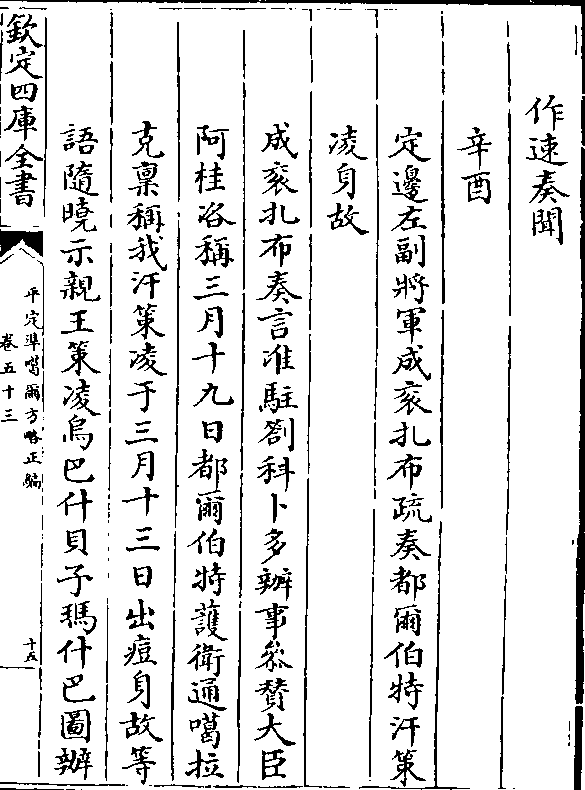 作速奏聞
辛酉
定邊左副將軍成衮扎布疏奏都爾伯特汗策
凌身故
成衮扎布奏言准駐劄科卜多辦事叅贊大臣
阿桂咨稱三月十九日都爾伯特護衛通噶拉
克稟稱我汗策凌于三月十三日出痘身故等
語隨曉示親王策凌烏巴什貝子瑪什巴圖辦
欽定四庫全書
平定準噶爾方略正編
卷五十三
十五